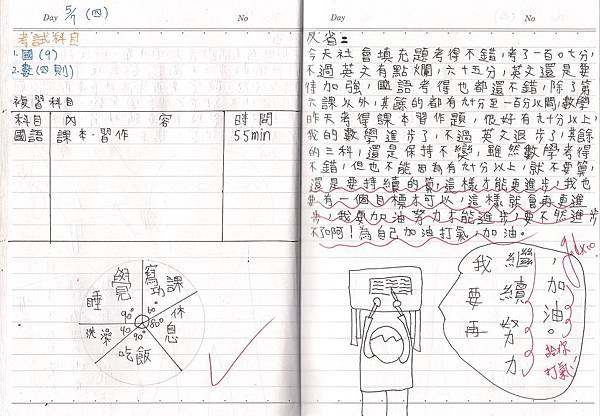 Day 5/7 (四) No
考試科目
1.國(9)
2.數(四則)
複習科目
科目 內 容 時間
國語 課本.習作 55min
睡覺
寫功課
休息
吃飯
洗澡
90°
60°
80°
90°
40°
Day No
反省:
今天社會填充題考得不錯,考了一百0七分,
不過英文有點爛,六十五分,英文還是要
加強,國語考得也都還不錯,除了第
六課以外,其餘的都有九十分至一百分以間,數學
昨天考得課本習作題,很好有九十分以上,
我的數學進步了,不過英文退步了,其餘
的三科,還是保持不變,雖然數學考得
不錯,但也不能因為有九十分以上,就不要算,
還是要持續的算,這樣才能更進步,我也
要有一個目標才可以,這樣就會再更進
步,我要加油努力才能進步,要不然進步
不了阿!為自己加油打氣,加油。
我要再
繼續努力
,加油。
給你
打氣!